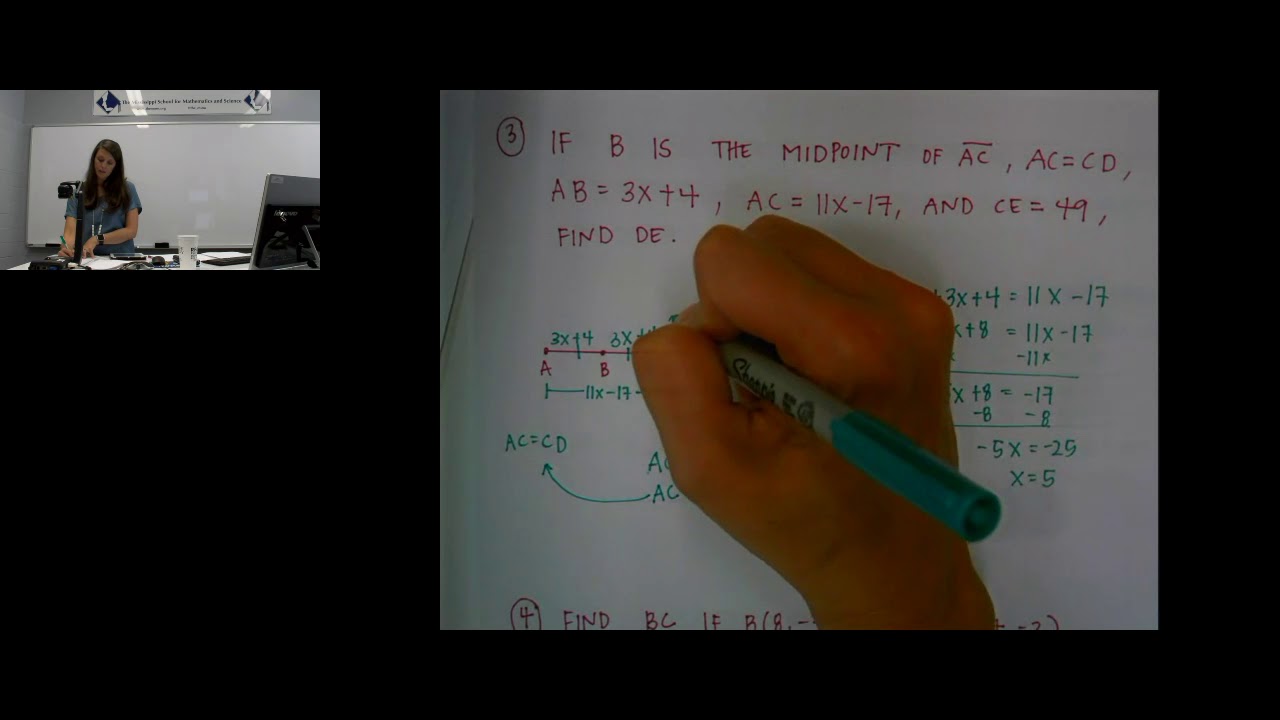 The Mississippi School for Mathematics and Science
③ IF B IS THE MIDPOINT OF AC, AC=CD,
AB = 3x+4, AC = 11x-17, AND CE = 49,
FIND DE.
3x+4 3x+4
A B
11x-17
AC=CD
AC
AC
+3x+4 = 11x-17
x+8 = 11x-17
-11x
x+8 = -17
-8 -8
-5x = -25
x=5
Sharpie
④ FIND BC IF B(8,